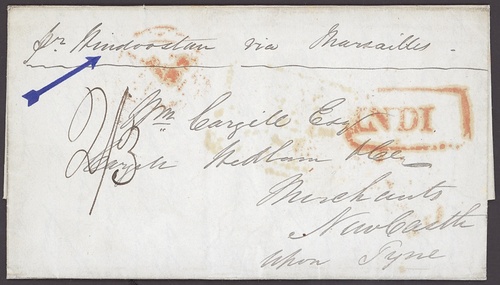 pr Hindoostan via Marsailles.
2/3
Wm Cargill Esq
INDI
Cargill Hedlam & Co
Merchants
NewCastle
upon Tyne